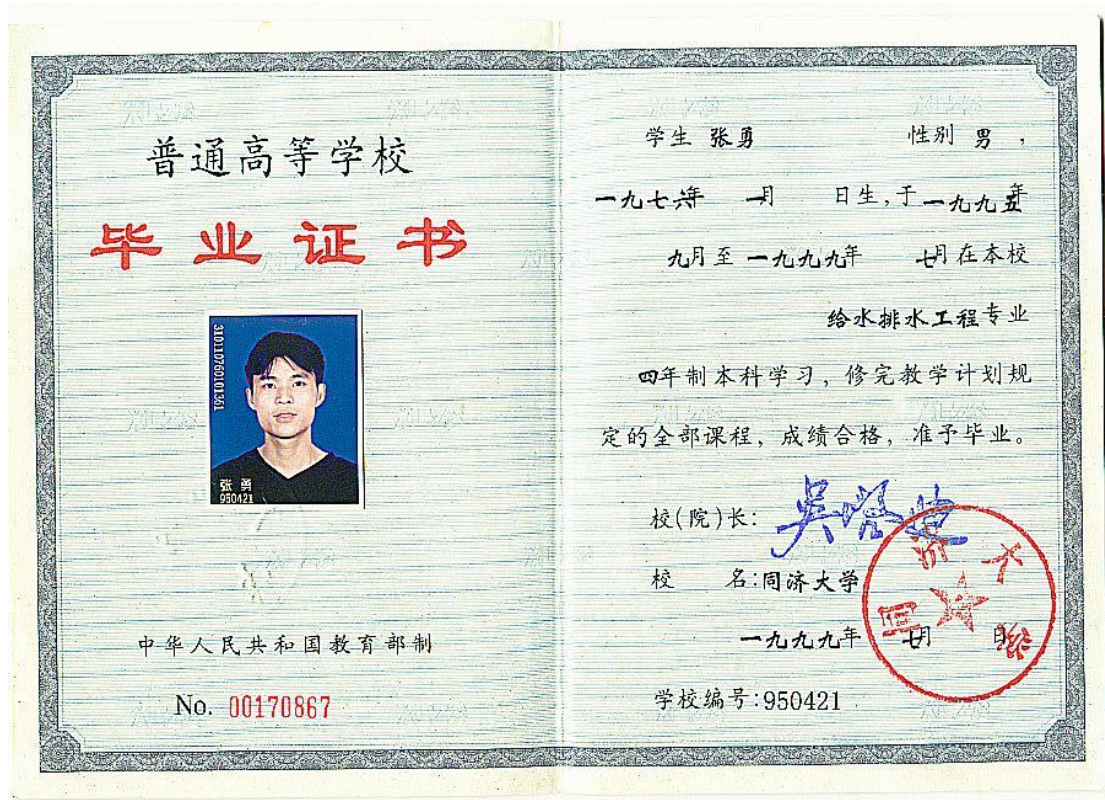 普通高等学校
毕业证书
310110760101351
张勇
950421
中华人民共和国教育部制
No. 00170867
学生 张勇 性别 男，
一九七六年 一月 日生，于一九九五年
九月至一九九九年 七月在本校
给水排水工程专业
四年制本科学习，修完教学计划规
定的全部课程，成绩合格，准予毕业。
校(院)长：
校 名：同济大学
一九九九年 七月 日
学校编号：950421
同济大学